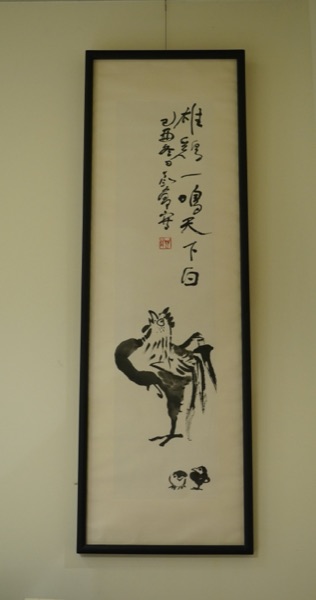 雄鶏一鳴天下白
己酉冬日